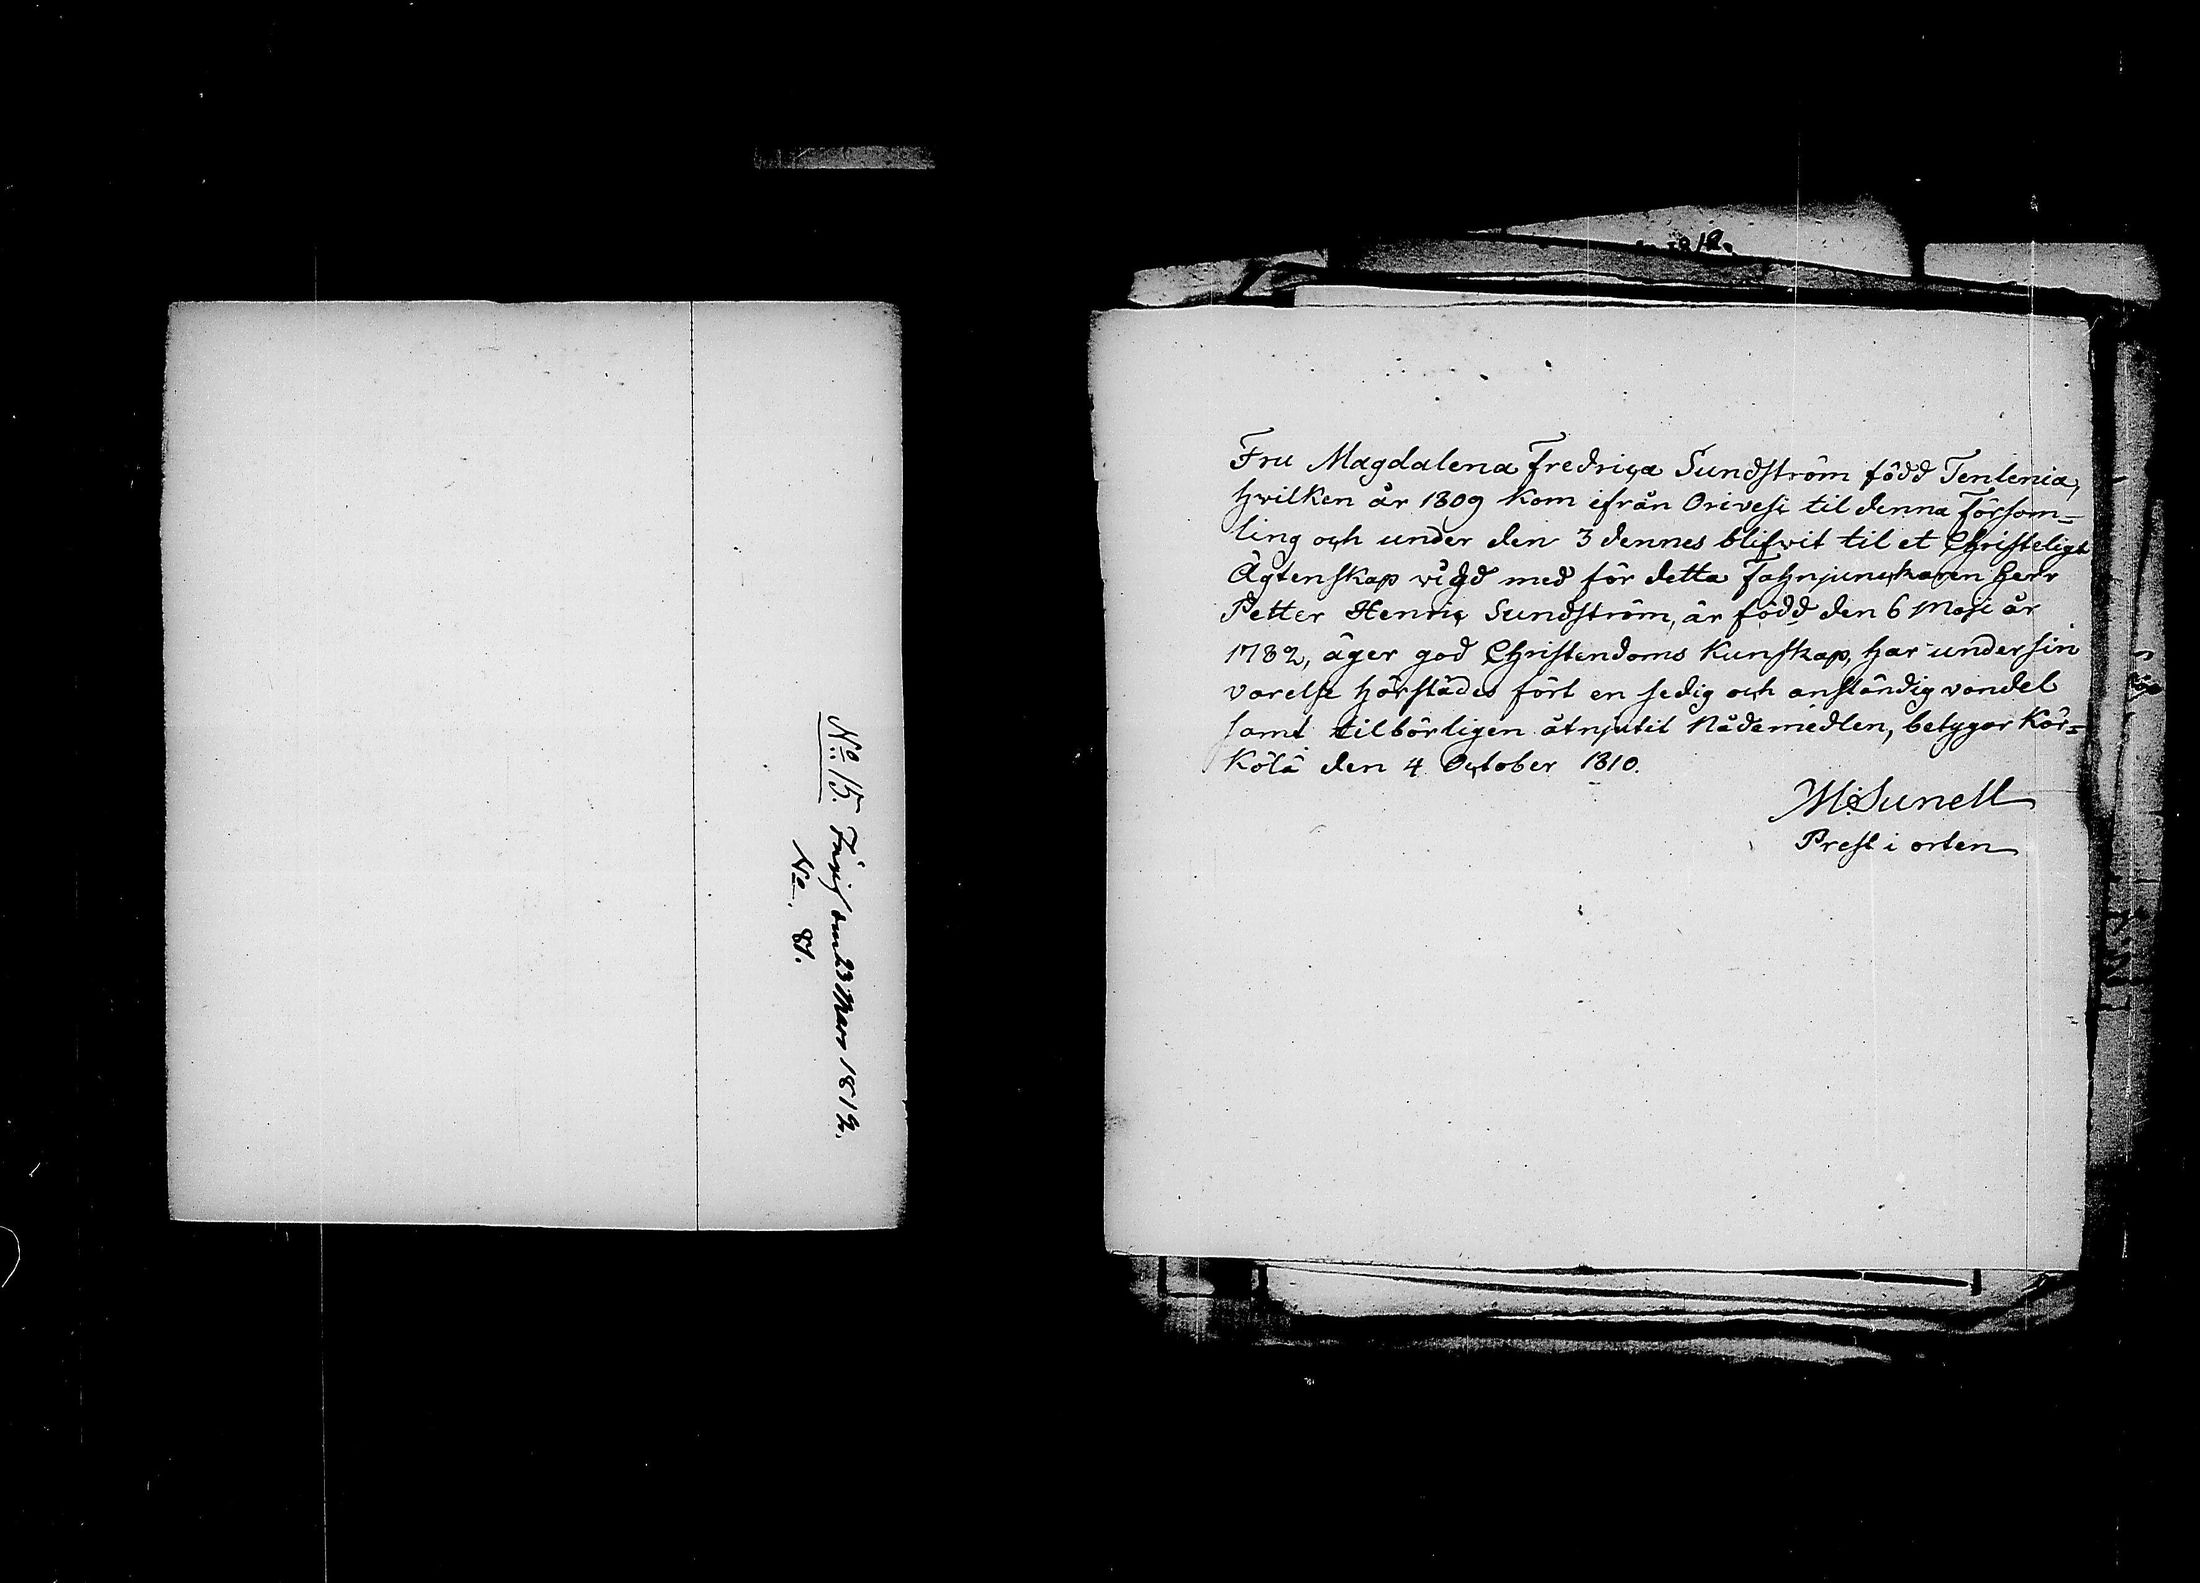 No: 15.
Inviſ den 23 Mars 1812.
No. 81.
Fru Magdalena Fredrica Sundſtröm född Tenlenia,
hvilken år 1809 kom ifrån Oriveſi til denna Förſam=
ling och under den 3 dennes blifvit til et Chriſteligt
Ägtenſkap vigd med för detta Fahnjunckaren Herr
Petter Henric Sundſtröm, är född den 6 Maji år
1782, äger god Chriſtendoms Kunſkap, har under ſin
varelſe härſtädes fört en ſedig och anſtändig vandel
ſamt tilbörligen åtnjutit Nådemedlen, betygar Kär=
kölä den 4 October 1810.
M: Sunell
Preſt i orten